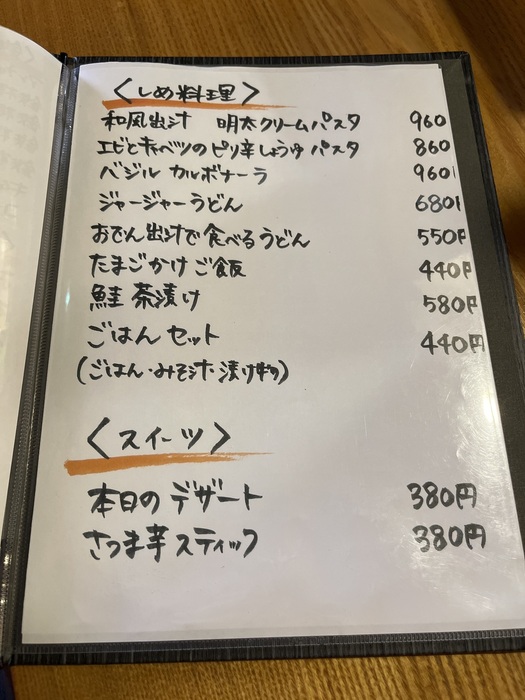 〈しめ料理〉
和風出汁 明太クリームパスタ 960
エビとキャベツのピリ辛しょうゆパスタ 860
バジルカルボナーラ 960
ジャージャーうどん 680
おでん出汁で食べるうどん 550円
たまごかけご飯 440円
鮭茶漬け 580円
ごはんセット 440円
(ごはん・みそ汁・漬け物)
〈スイーツ〉
本日のデザート 380円
さつま芋スティック 380円